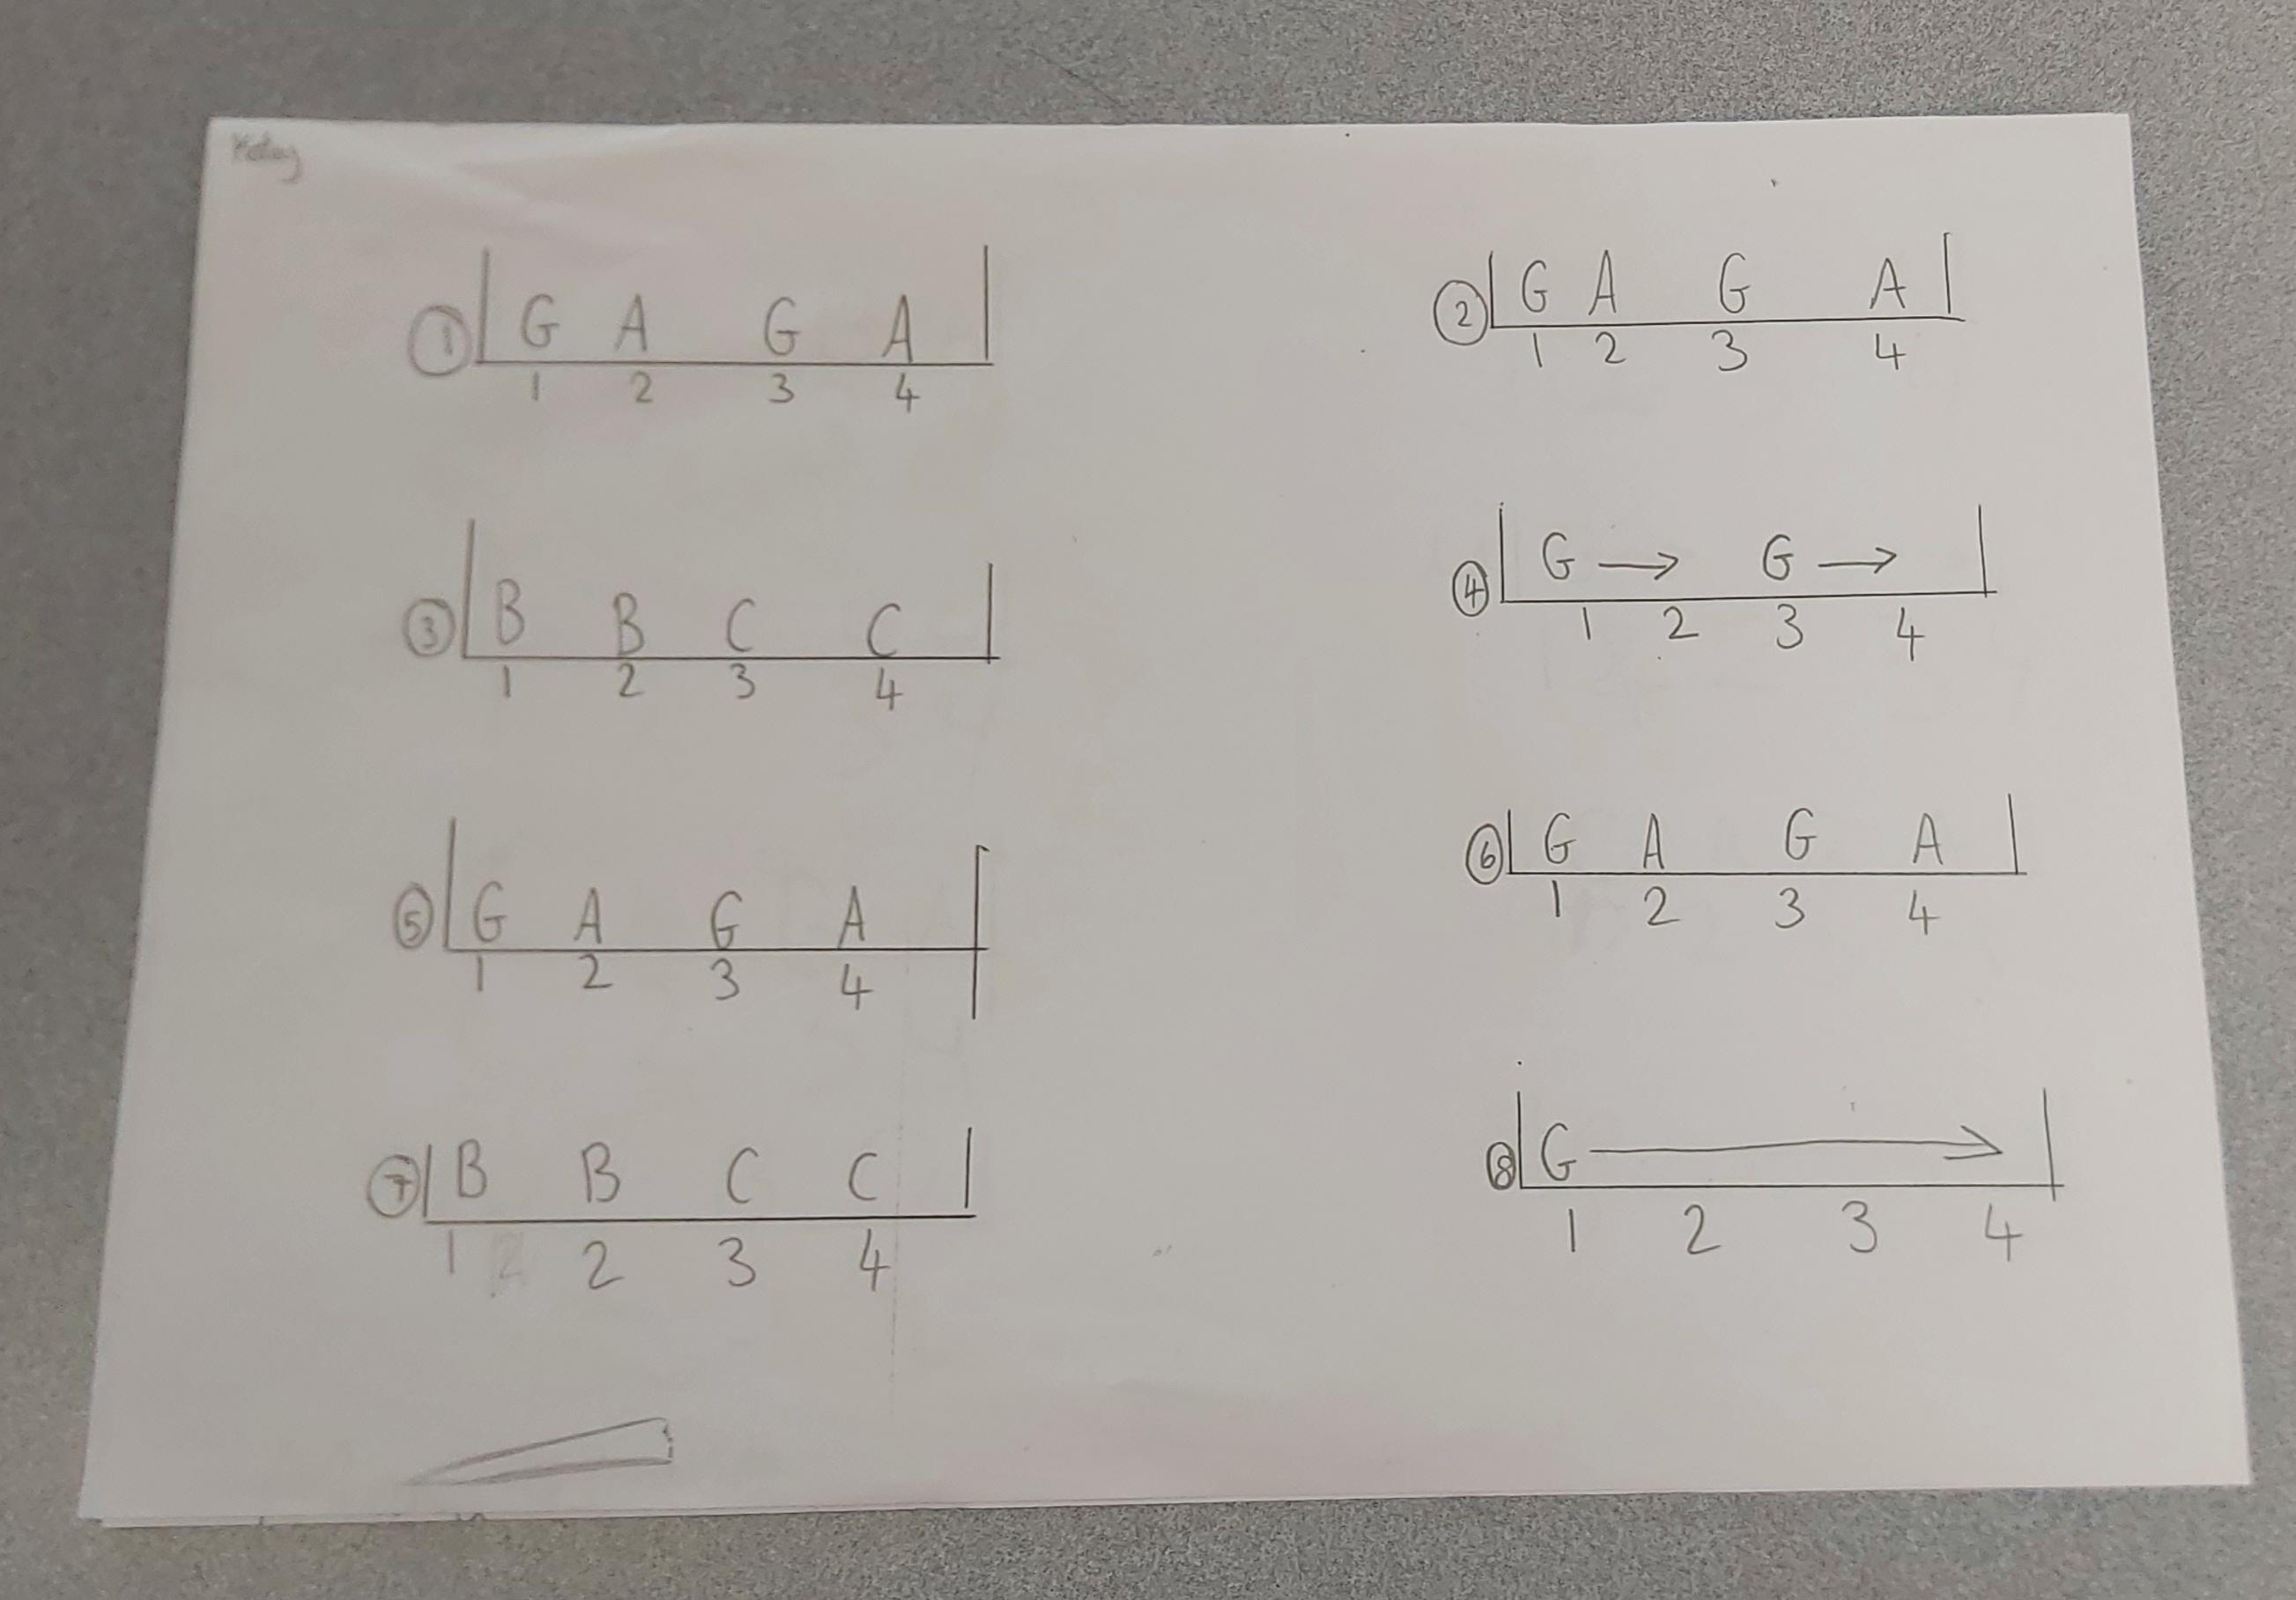 ① G A G A
1 2 3 4
② G A G A
1 2 3 4
③ B B C C
1 2 3 4
④ G → G →
1 2 3 4
⑤ G A G A
1 2 3 4
⑥ G A G A
1 2 3 4
⑦ B B C C
1 2 3 4
⑧ G →
1 2 3 4